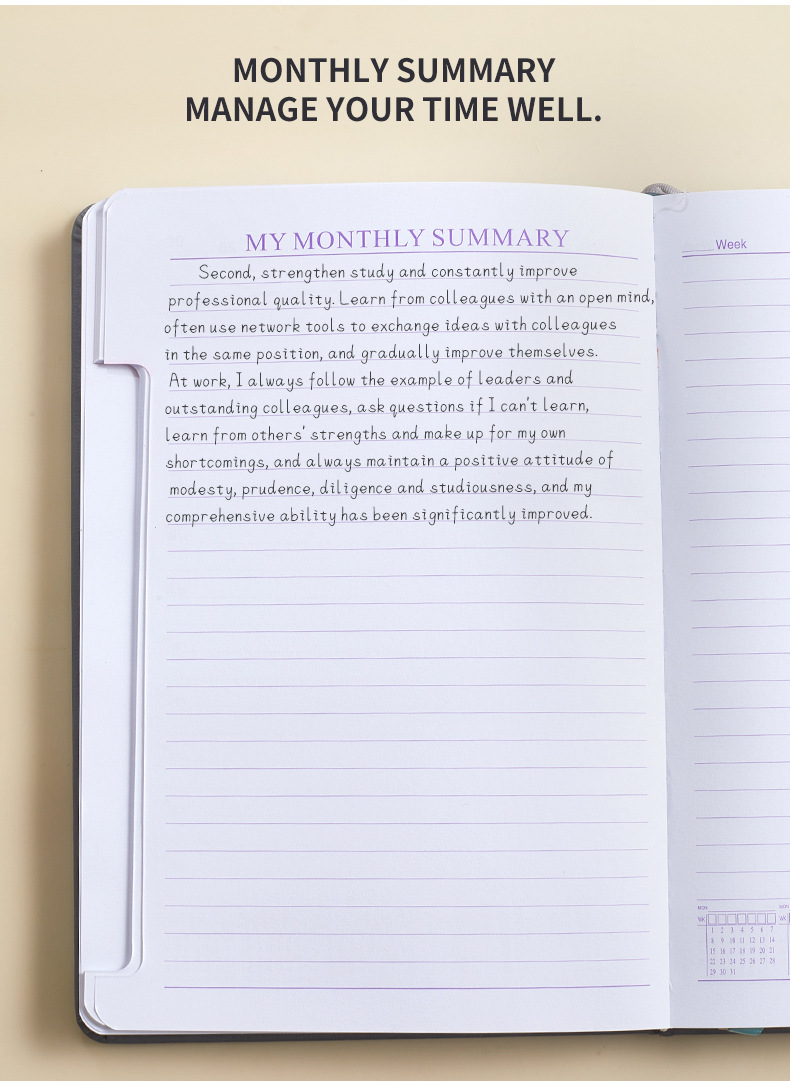 MONTHLY SUMMARY
MANAGE YOUR TIME WELL.
MY MONTHLY SUMMARY
Second, strengthen study and constantly improve
professional quality. Learn from colleagues with an open mind,
often use network tools to exchange ideas with colleagues
in the same position, and gradually improve themselves.
At work, I always follow the example of leaders and
outstanding colleagues, ask questions if I can't learn,
learn from others' strengths and make up for my own
shortcomings, and always maintain a positive attitude of
modesty, prudence, diligence and studiousness, and my
comprehensive ability has been significantly improved.
Week
MON
MON
WK
WK
1 2 3 4 5 6 7
8 9 10 11 12 13 14
15 16 17 18 19 20 21
22 23 24 25 26 27 28
29 30 31